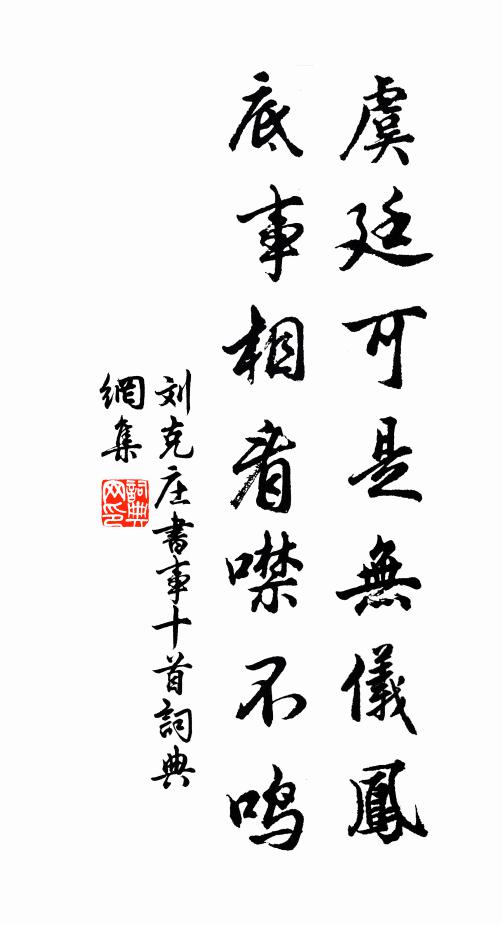 虞廷可是無儀鳳
底事相看噤不鸣
刘克庄書事十首詞典
網集
詞典
网印